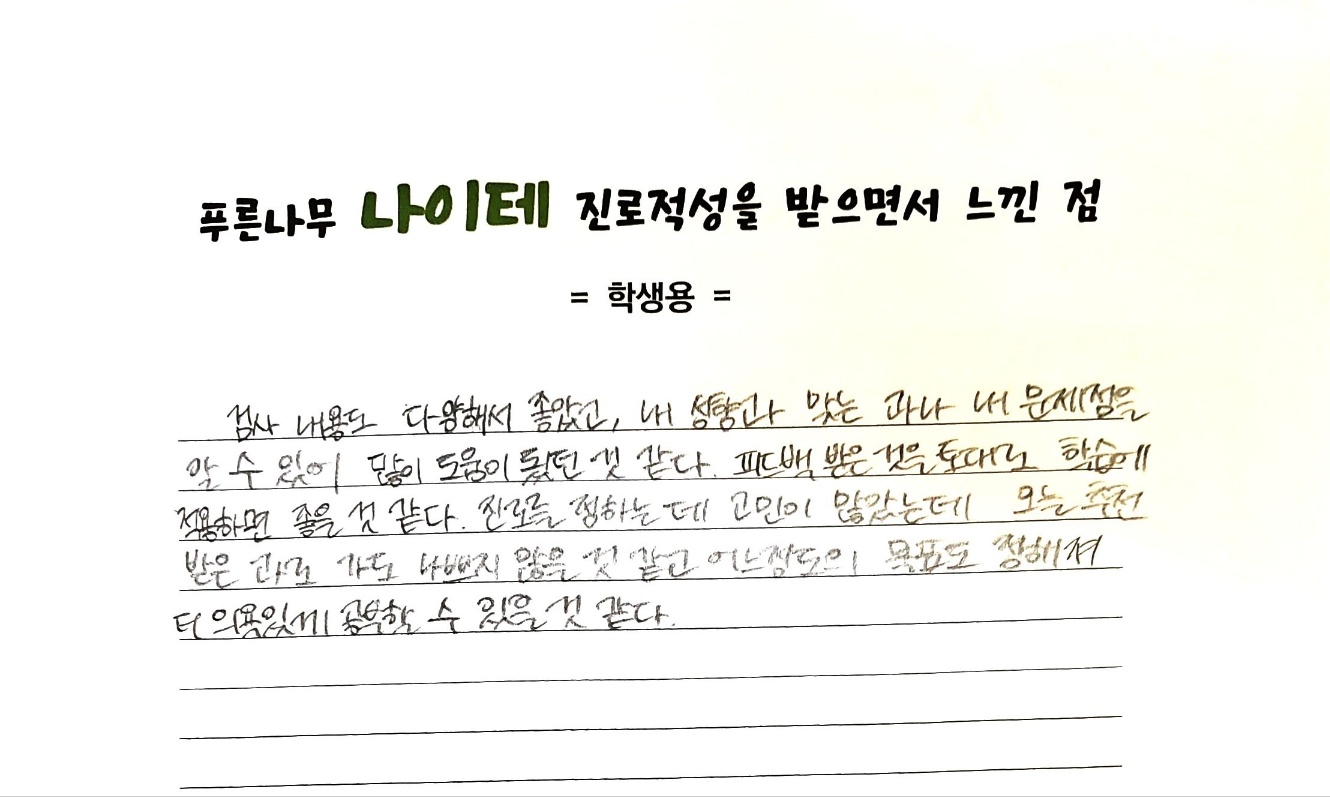 푸른나무 나이테 진로적성을 받으면서 느낀 점
= 학생용 =
검사 내용도 다양해서 좋았고, 내 성향과 맞는 과나 내 문제점을
알 수 있어 많이 도움이 됐던 것 같다. 피드백 받은 것을 토대로 학습에
적용하면 좋을 것 같다. 진로를 정하는 데 고민이 많았는데 오늘 추천
받은 과로 가도 나쁘지 않을 것 같고 어느정도의 목표도 정해져
더 의욕있게 공부할 수 있을 것 같다.